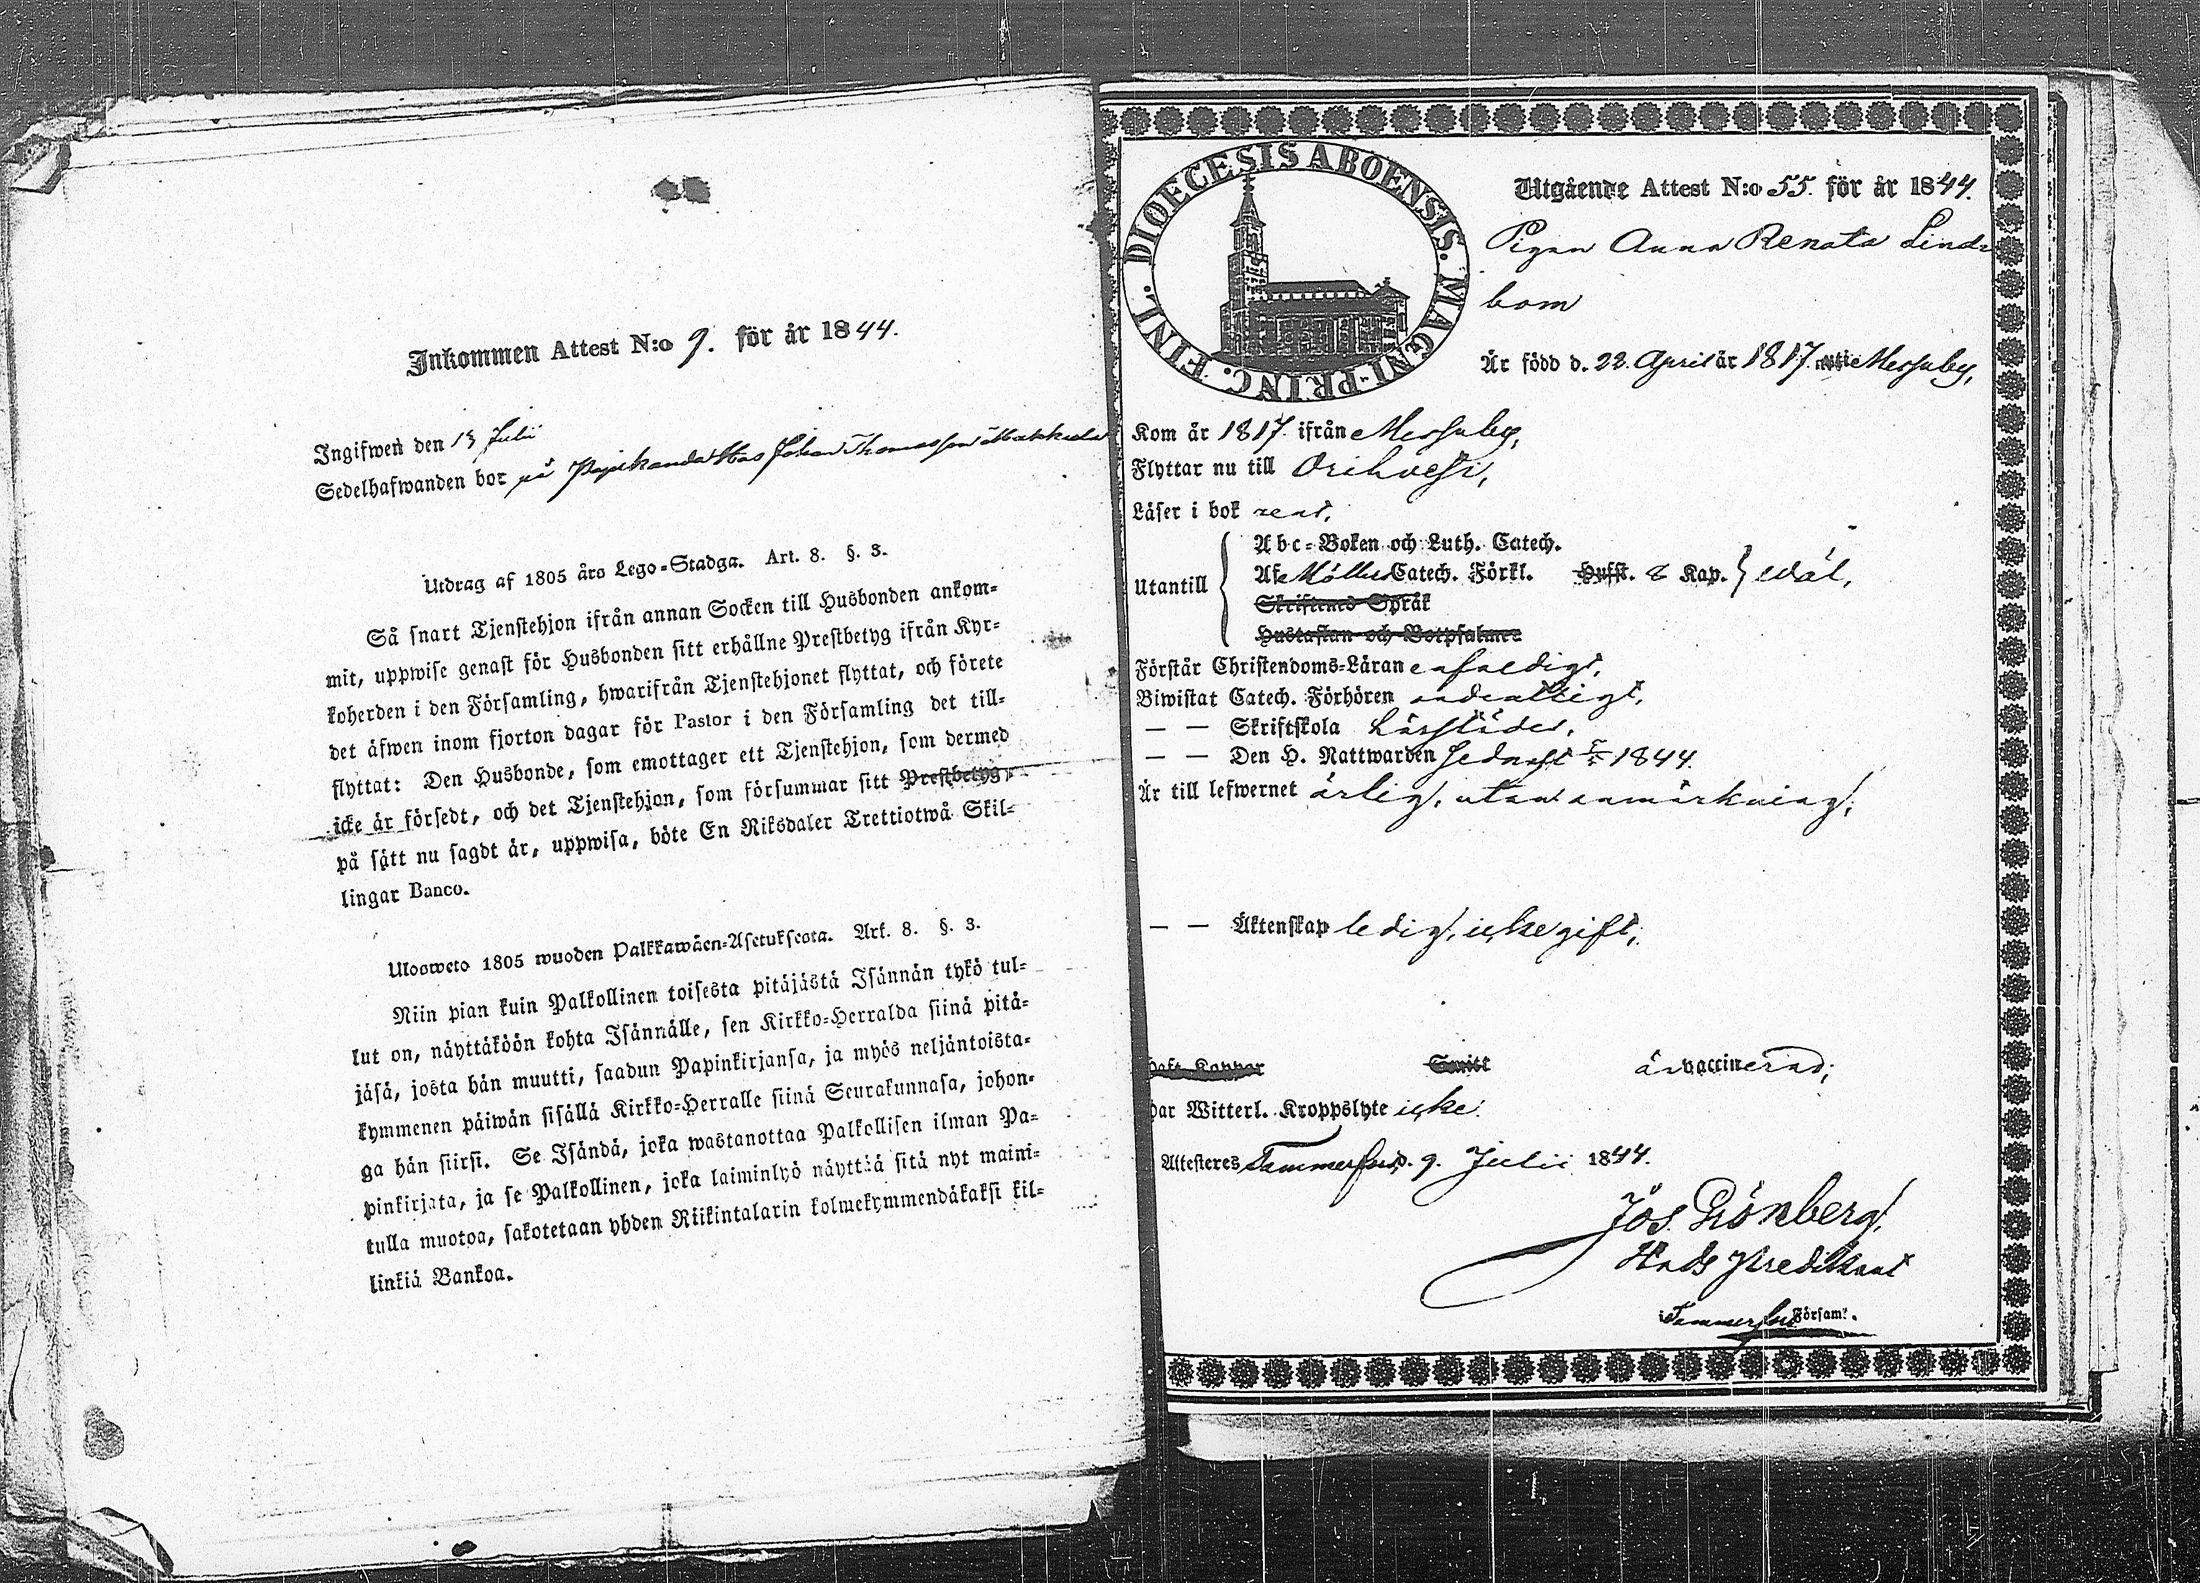 Inkommen Attest N:o 9. för år 1844.
Ingifwen den 13 Julii
Sedelhafwanden bor på Johan Thomasson
Utdrag af 1805 års Lego-Stadga. Art. 8. §. 3.
Så snart Tjenstehjon ifrån annan Socken till Husbonden ankom-
mit, uppwise genast för Husbonden sitt erhållne Prestbetyg ifrån Kyr-
koherden i den Församling, hwarifrån Tjenstehjonet flyttat, och förete
det äfwen inom fjorton dagar för Pastor i den Församling det till-
flyttat: Den Husbonde, som emottager ett Tjenstehjon, som dermed
icke är försedt, och det Tjenstehjon, som försummar sitt Prestbetyg,
på sätt nu sagdt är, uppwisa, böte En Riksdaler Trettiotwå Skil-
lingar Banco.
Ulosweto 1805 wuoden Palkkawäen-Asetuksesta. Art. 8. §. 3.
Niin pian kuin Palkollinen toisesta pitäjästä Isännän tykö tul-
lut on, näyttäköön kohta Isännälle, sen Kirkko-Herralda siinä pitä-
jäsä, josta hän muutti, saadun Papinkirjansa, ja myös neljäntoista-
kymmenen päiwän sisällä Kirkko-Herralle siinä Seurakunnasa, johon-
ga hän siirsi. Se Isändä, joka wastanottaa Palkollisen ilman Pa-
pinkirjata, ja se Palkollinen, joka laiminlyö näyttää sitä nyt maini-
tulla muotoa, sakotetaan yhden Riikintalarin kolmekymmendäkaksi kil-
linkiä Bankoa.
DIOECESIS ABOENSIS. MAGNI-PRINC. FINL.
Utgående Attest N:o 55. för år 1844.
Pigan Anna Renata Lind-
bom
Är född d. 22. April år 1817. uti Messuby,
Kom år 1817. ifrån Messuby,
Flyttar nu till Orihvesi,
Läser i bok rent,
Utantill
Abc-Boken och Luth. Catech.
Af Möllers Catech. Förkl. Hufst. 8 Kap. } wäl,
Skriftened Språk
Hustaflan och Botpsalmer
Förstår Christendoms-Läran enfaldigt,
Biwistat Catech. Förhören ordentligt,
— — Skriftskola
— — Den H. Nattwarden sednast 1844.
Är till lefwernet ärlig, utan anmärkning,
— — Äktenskap ledig, icke gift,
haft Koppor Smitt är vaccinerad,
har Witterl. Kroppslyte icke.
Attesteres Tammerfors d. 9. Julii 1844.
Jos. Grönberg,
Predikant
i Tammerfors Församl.